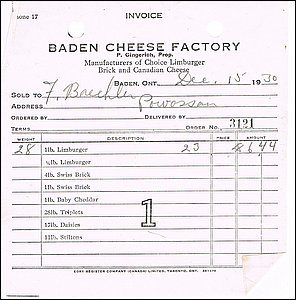 INVOICE
BADEN CHEESE FACTORY
P. Gingerich, Prop.
Manufacturers of Choice Limburger
Brick and Canadian Cheese
BADEN, ONT., Dec. 15 1930
SOLD TO F. Baechler
ADDRESS Powassan
ORDERED BY DELIVERED BY
TERMS ORDER NO. 3121
WEIGHT DESCRIPTION PRICE AMOUNT
28 1lb. Limburger 23 6.44
½lb. Limburger
4lb. Swiss Brick
1lb. Swiss Brick
1lb. Baby Cheddar
28lb. Triplets
17lb. Daisies
11lb. Stiltons
1
REGISTER COMPANY (CANADA) LIMITED, TORONTO, ONT.